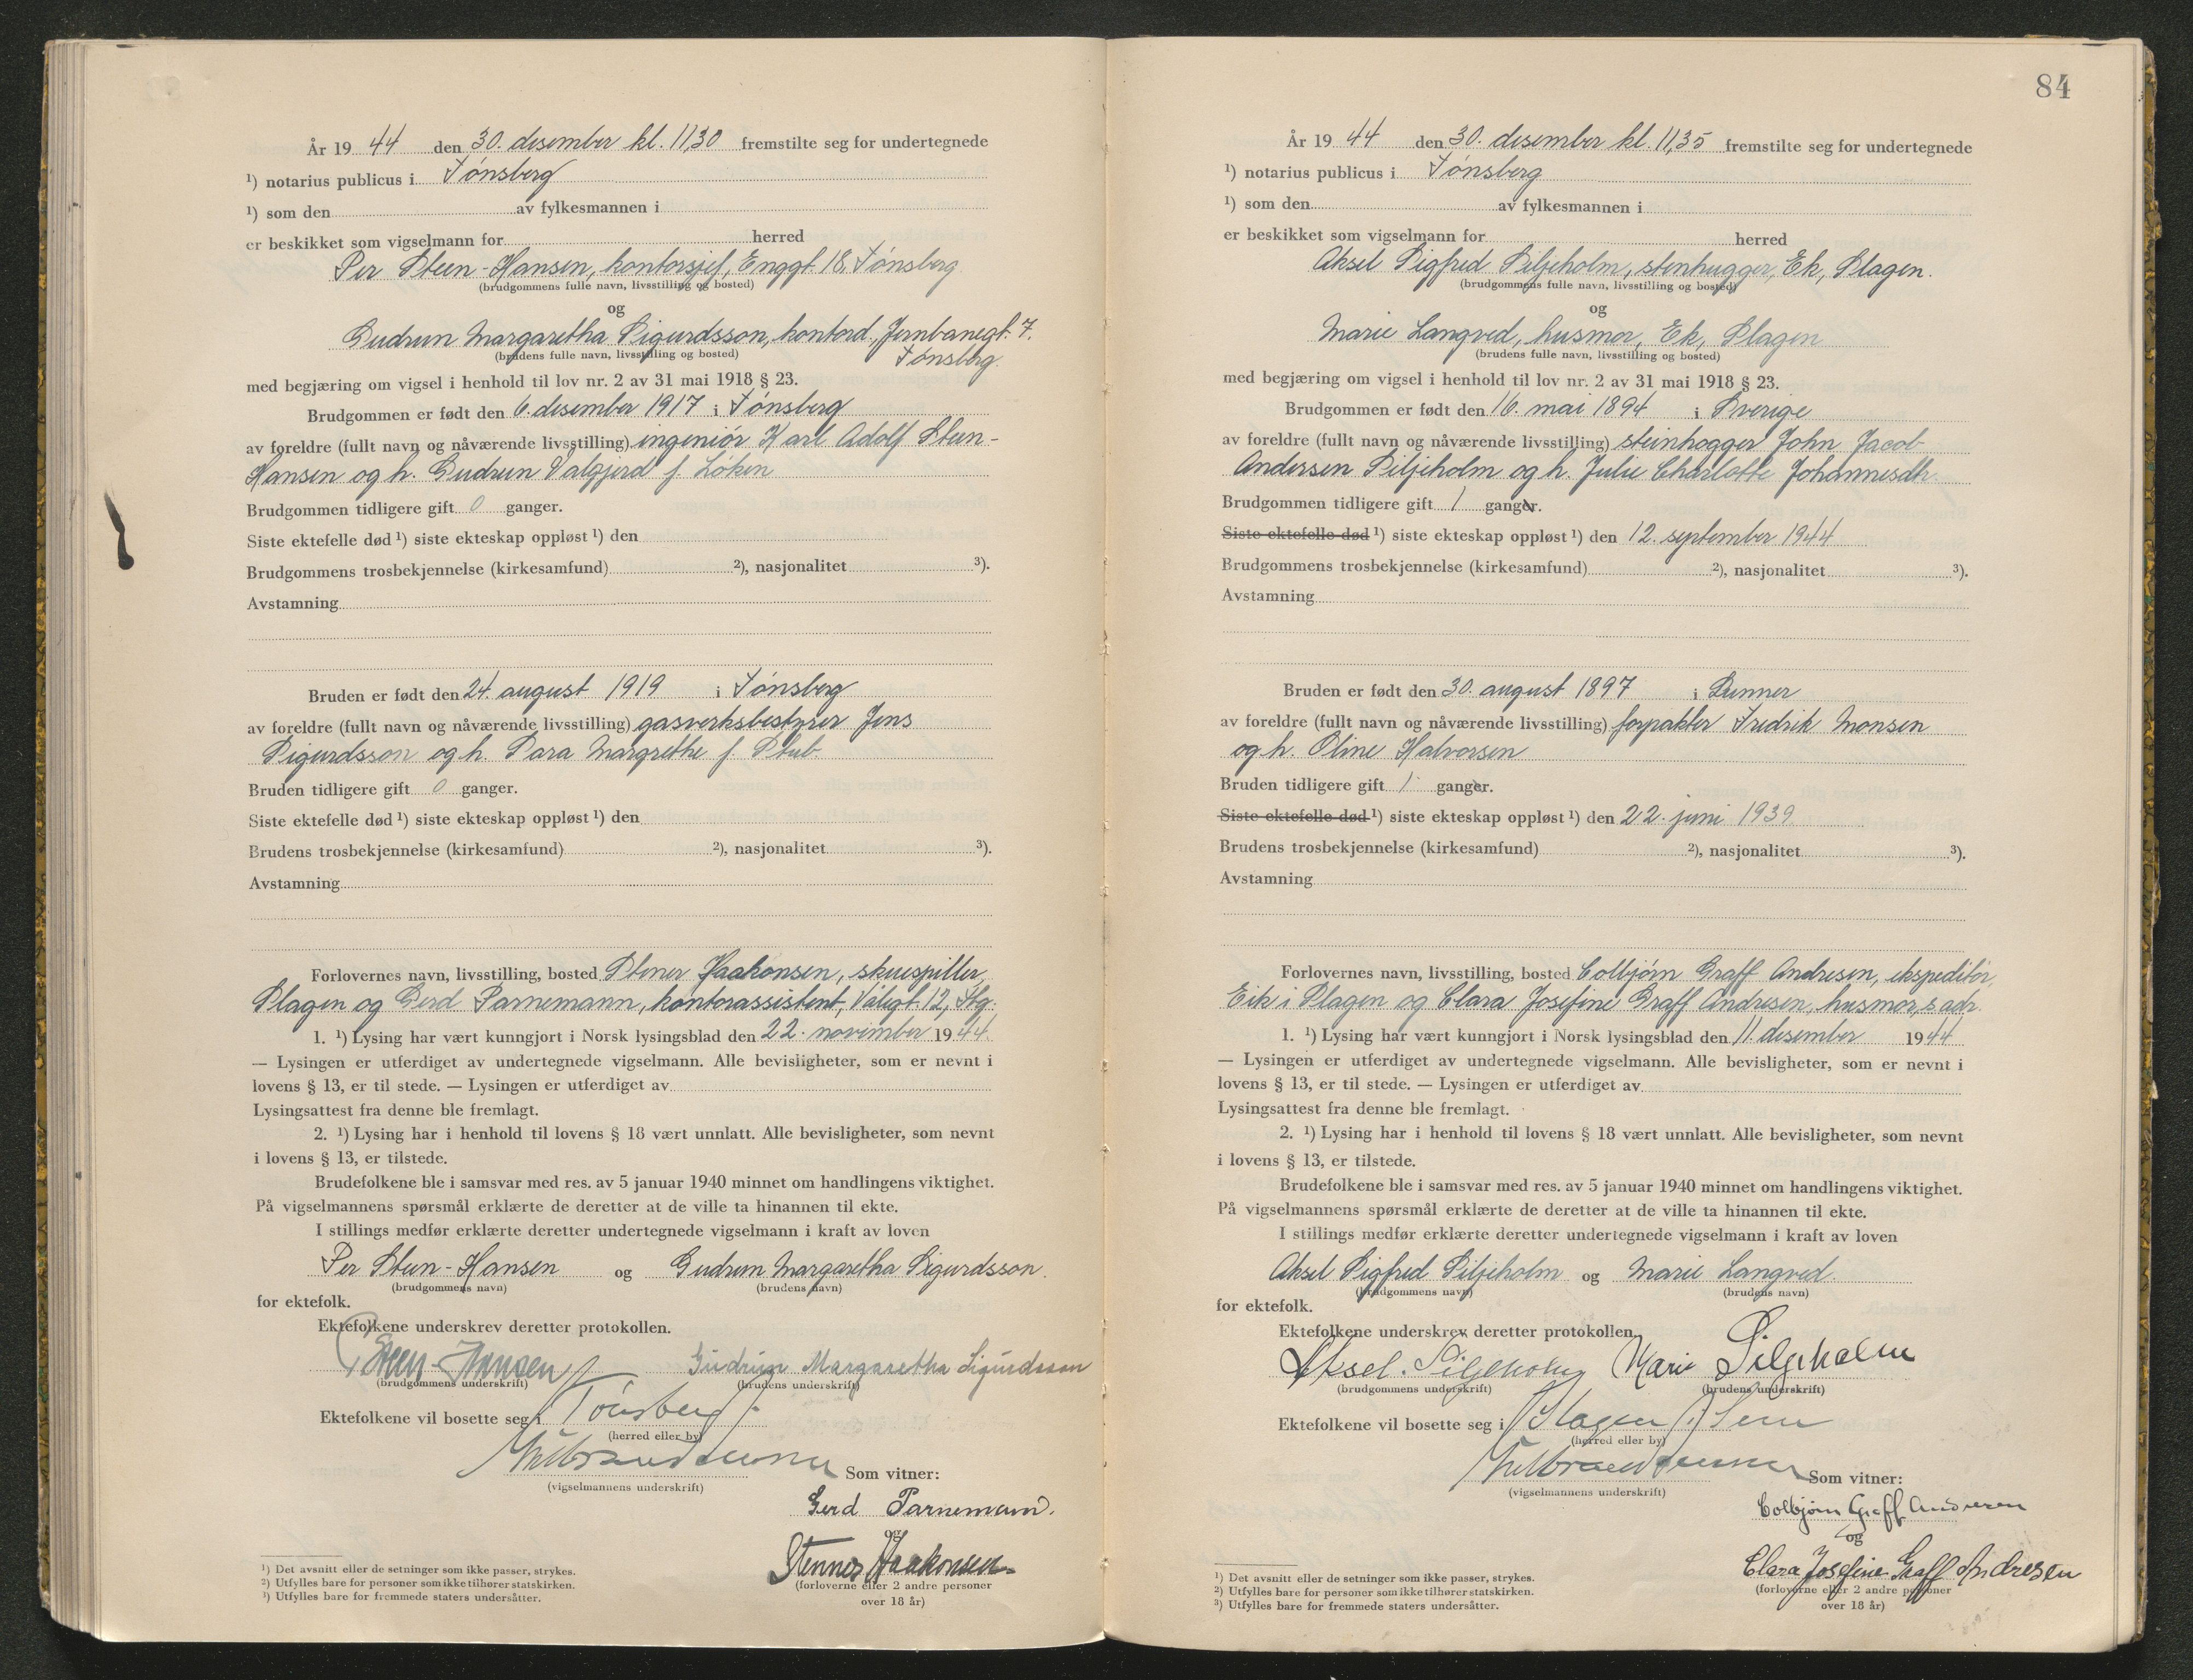 År 1944 den 30. desember kl. 11,30 fremstilte seg for undertegnede
¹) notarius publicus i Tønsberg
¹) som den av fylkesmannen i
er beskikket som vigselmann for herred
Per Steen-Hansen, kontorsjef, Enggt. 18, Tønsberg
(brudgommens fulle navn, livsstilling og bosted)
og
Gudrun Margaretha Sigurdsson, kontord., Jernbanegt. 7.
(brudens fulle navn, livsstilling og bosted)
Tønsberg.
med begjæring om vigsel i henhold til lov nr. 2 av 31 mai 1918 § 23.
Brudgommen er født den 6. desember 1917 i Tønsberg
av foreldre (fullt navn og nåværende livsstilling) ingeniør Karl Adolf Steen-
Hansen og h. Gudrun Valgjerd f. Løken
Brudgommen tidligere gift 0 ganger.
Siste ektefelle død ¹) siste ekteskap oppløst ¹) den
Brudgommens trosbekjennelse (kirkesamfund) ²), nasjonalitet ³).
Avstamning
Bruden er født den 24. august 1919 i Tønsberg
av foreldre (fullt navn og nåværende livsstilling) gasverksbestyrer Jens
Sigurdsson og h. Sara Margrethe f. Stub.
Bruden tidligere gift 0 ganger.
Siste ektefelle død ¹) siste ekteskap oppløst ¹) den
Brudens trosbekjennelse (kirkesamfund) ²), nasjonalitet ³).
Avstamning
Forlovernes navn, livsstilling, bosted Stener Haakonsen, skuespiller,
Slagen og Gerd Parnemann, kontorassistent, Vålegt. 12, Tbg.
1. ¹) Lysing har vært kunngjort i Norsk lysingsblad den 22. november 1944.
— Lysingen er utferdiget av undertegnede vigselmann. Alle bevisligheter, som er nevnt i
lovens § 13, er til stede. — Lysingen er utferdiget av
Lysingsattest fra denne ble fremlagt.
2. ¹) Lysing har i henhold til lovens § 18 vært unnlatt. Alle bevisligheter, som nevnt
i lovens § 13, er tilstede.
Brudefolkene ble i samsvar med res. av 5 januar 1940 minnet om handlingens viktighet.
På vigselmannens spørsmål erklærte de deretter at de ville ta hinannen til ekte.
I stillings medfør erklærte deretter undertegnede vigselmann i kraft av loven
Per Steen-Hansen og Gudrun Margaretha Sigurdsson.
(brudgommens navn) (brudens navn)
for ektefolk.
Ektefolkene underskrev deretter protokollen.
P Steen-Hansen Gudrun Margaretha Sigurdsson
(brudgommens underskrift) (brudens underskrift)
Ektefolkene vil bosette seg i Tønsberg
(herred eller by)
Som vitner:
(vigselmannens underskrift)
Gerd Parnemann.
og
Stenner Haakonsen
(forloverne eller 2 andre personer
over 18 år)
¹) Det avsnitt eller de setninger som ikke passer, strykes.
²) Utfylles bare for personer som ikke tilhører statskirken.
³) Utfylles bare for fremmede staters undersåtter.
84
År 1944 den 30. desember kl. 11,35 fremstilte seg for undertegnede
¹) notarius publicus i Tønsberg
¹) som den av fylkesmannen i
er beskikket som vigselmann for herred
Aksel Sigfred Siljeholm, stenhugger, Ek, Slagen.
(brudgommens fulle navn, livsstilling og bosted)
og
Marie Langved, husmor, Ek, Slagen
(brudens fulle navn, livsstilling og bosted)
med begjæring om vigsel i henhold til lov nr. 2 av 31 mai 1918 § 23.
Brudgommen er født den 16. mai 1894 i Sverige
av foreldre (fullt navn og nåværende livsstilling) steinhogger John Jacob
Andersen Siljeholm og h. Julie Charlotte Johannesdtr.
Brudgommen tidligere gift 1 ganger.
Siste ektefelle død ¹) siste ekteskap oppløst ¹) den 12. september 1944
Brudgommens trosbekjennelse (kirkesamfund) ²), nasjonalitet ³).
Avstamning
Bruden er født den 30. august 1897 i Lunner
av foreldre (fullt navn og nåværende livsstilling) forpakter Fredrik Monsen
og h. Oline Halvorsen
Bruden tidligere gift 1 ganger.
Siste ektefelle død ¹) siste ekteskap oppløst ¹) den 22. juni 1939
Brudens trosbekjennelse (kirkesamfund) ²), nasjonalitet ³).
Avstamning
Forlovernes navn, livsstilling, bosted Colbjørn Graff Andresen, ekspeditør,
Eik i Slagen og Clara Josefine Graff Andresen, husmor, s. adr.
1. ¹) Lysing har vært kunngjort i Norsk lysingsblad den 11. desember 1944
— Lysingen er utferdiget av undertegnede vigselmann. Alle bevisligheter, som er nevnt i
lovens § 13, er til stede. — Lysingen er utferdiget av
Lysingsattest fra denne ble fremlagt.
2. ¹) Lysing har i henhold til lovens § 18 vært unnlatt. Alle bevisligheter, som nevnt
i lovens § 13, er tilstede.
Brudefolkene ble i samsvar med res. av 5 januar 1940 minnet om handlingens viktighet.
På vigselmannens spørsmål erklærte de deretter at de ville ta hinannen til ekte.
I stillings medfør erklærte deretter undertegnede vigselmann i kraft av loven
Aksel Sigfred Siljeholm og Marie Langved.
(brudgommens navn) (brudens navn)
for ektefolk.
Ektefolkene underskrev deretter protokollen.
Aksel. Siljeholm Marie Siljeholm
(brudgommens underskrift) (brudens underskrift)
Ektefolkene vil bosette seg i Slagen Sem
(herred eller by)
Som vitner:
(vigselmannens underskrift)
Colbjørn Graff Andresen
og
Clara Josefine Graff Andresen
(forloverne eller 2 andre personer
over 18 år)
¹) Det avsnitt eller de setninger som ikke passer, strykes.
²) Utfylles bare for personer som ikke tilhører statskirken.
³) Utfylles bare for fremmede staters undersåtter.